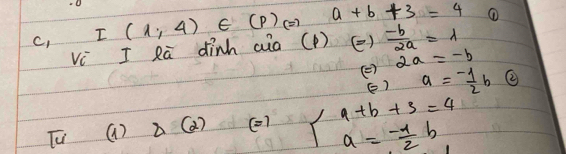 c, I (1; 4) ∈ (P) (=) a + b + 3 = 4 ①
Vì I là đỉnh của (P) (=) -b/2a = 1
(=) 2a = -b
(=) a = -1/2 b ②
Từ (1) & (2) (=) { a + b + 3 = 4
a = -1/2 b